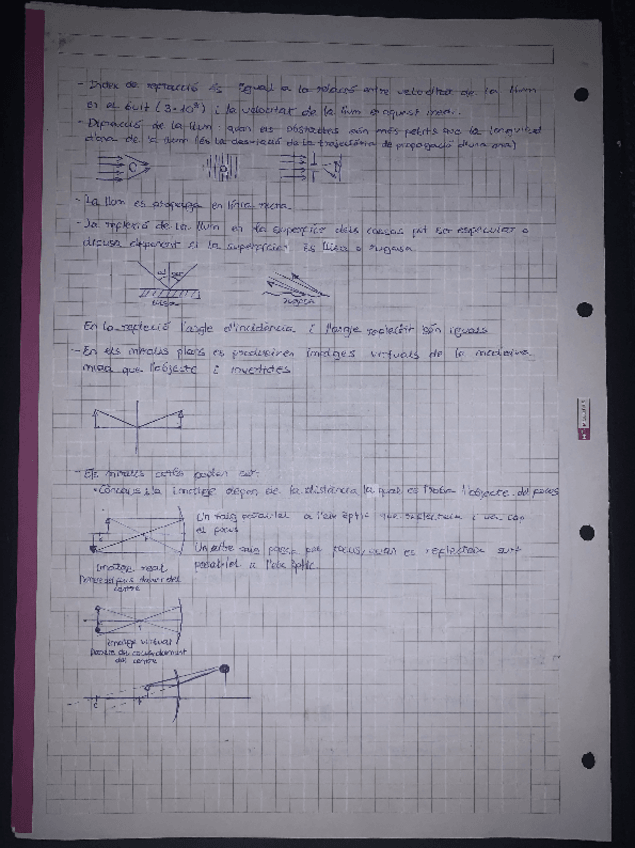 - Índex de refracció és igual a la relació entre velocitat de la llum
en el buit (3·10⁸) i la velocitat de la llum en aquest medi.
- Difracció de la llum: quan els obstacles són més petits que la longitud
d'ona de la llum (és la desviació de la trajectòria de propagació d'una ona)
- La llum es propaga en línia recta.
- La reflexió de la llum en la superfície dels cossos pot ser especular o
difusa depenent si la superfície és llisa o rugosa.
llisa
rugosa
En la reflexió l'angle d'incidència i l'angle reflectit són iguals
- En els miralls plans es produeixen imatges virtuals de la mateixa
mida que l'objecte i invertides
- Els miralls corbs poden ser:
· Còncaus: La imatge depen de la distància la qual es troba l'objecte del focus
Un raig paral·lel a l'eix òptic es reflecteix i va cap
el focus
Un altre raig passa pel focus, quan es reflecteix surt
paral·lel a l'eix òptic.
Imatge real
centre
Imatge virtual
del centre